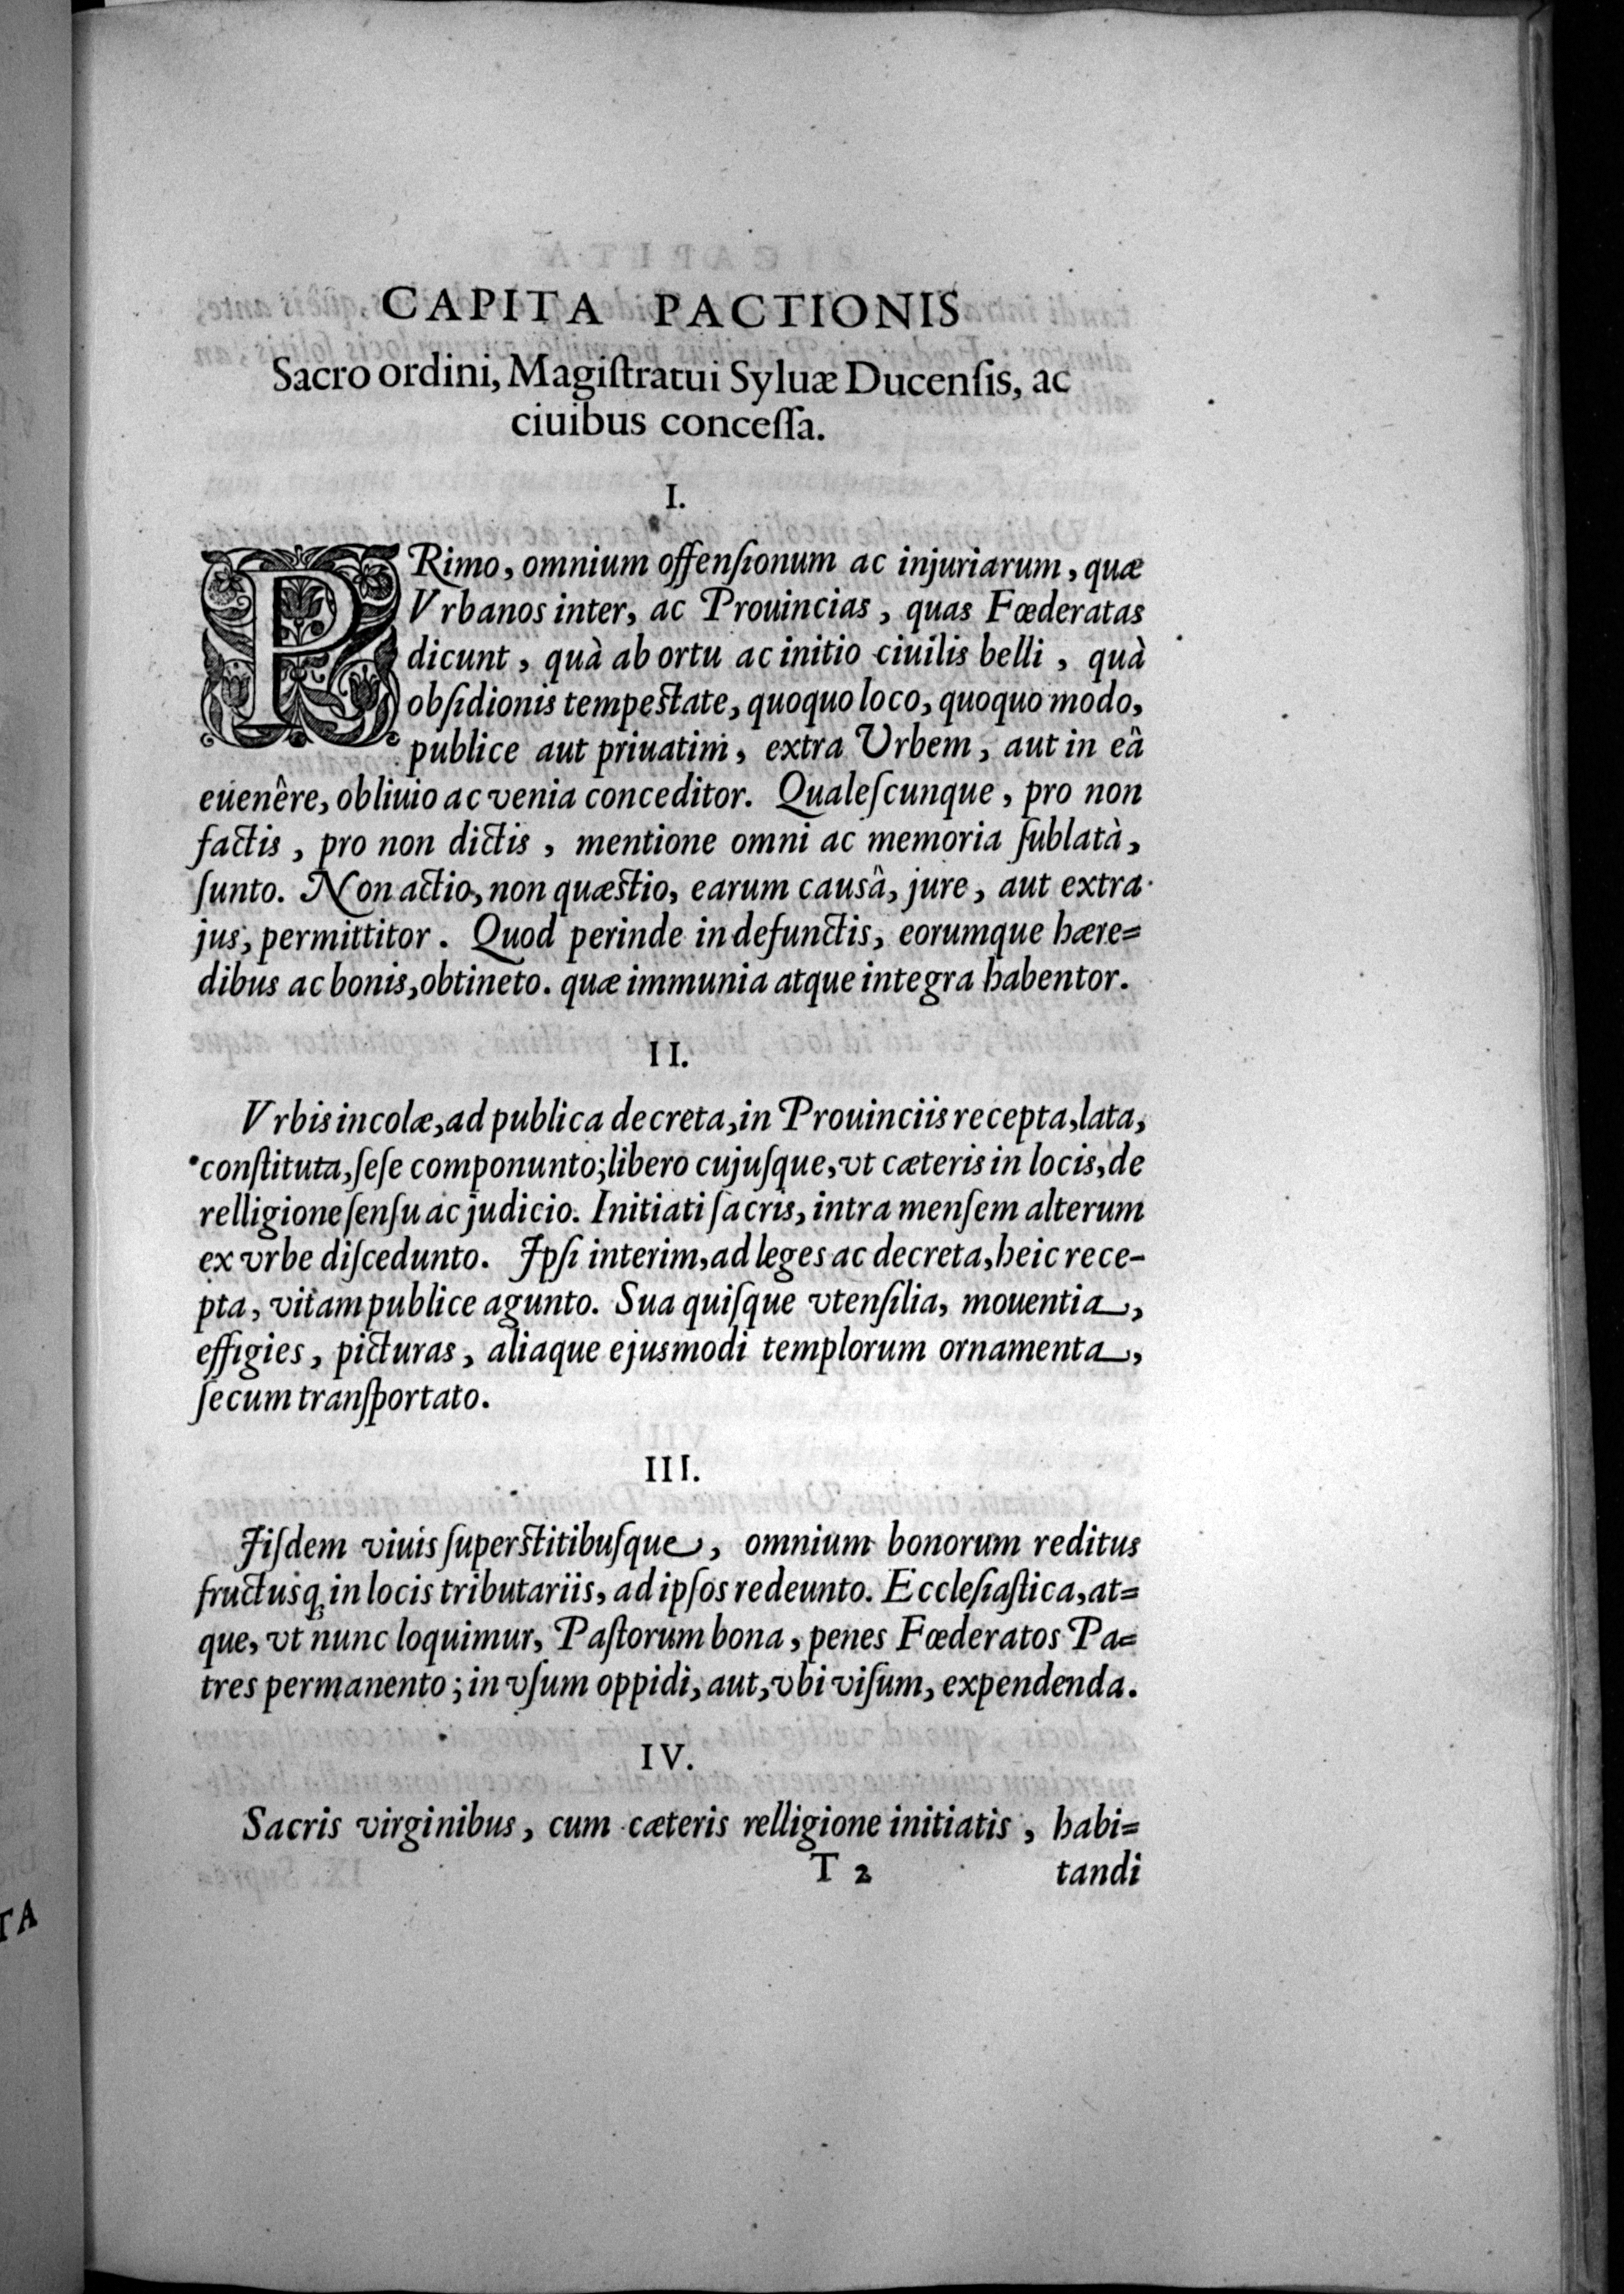 CAPITA PACTIONIS
Sacro ordini, Magiſtratui Syluæ Ducenſis, ac
ciuibus conceſſa.
I.
PRimo, omnium offenſionum ac injuriarum, quæ
Vrbanos inter, ac Prouincias, quas Fœderatas
dicunt, quà ab ortu ac initio ciuilis belli, quà
obſidionis tempeſtate, quoquo loco, quoquo modo,
publice aut priuatim, extra Urbem, aut in eâ
euenêre, obliuio ac venia conceditor. Qualeſcunque, pro non
factis, pro non dictis, mentione omni ac memoria ſublatà,
ſunto. Non actio, non quæſtio, earum causâ, jure, aut extra
jus, permittitor. Quod perinde in defunctis, eorumque hære=
dibus ac bonis, obtineto. quæ immunia atque integra habentor.
II.
Vrbis incolæ, ad publica decreta, in Prouinciis recepta, lata,
conſtituta, ſeſe componunto; libero cujuſque, vt cæteris in locis, de
relligione ſenſu ac judicio. Initiati ſacris, intra menſem alterum
ex vrbe diſcedunto. Ipſi interim, ad leges ac decreta, heic rece-
pta, vitam publice agunto. Sua quiſque vtenſilia, mouentia,
effigies, picturas, aliaque ejusmodi templorum ornamenta,
ſecum tranſportato.
III.
Iiſdem viuis ſuperſtitibuſque, omnium bonorum reditus
fructusq; in locis tributariis, ad ipſos redeunto. Eccleſiaſtica, at=
que, vt nunc loquimur, Paſtorum bona, penes Fœderatos Pa=
tres permanento; in vſum oppidi, aut, vbi viſum, expendenda.
IV.
Sacris virginibus, cum cæteris relligione initiatis, habi=
T 2 tandi
TA